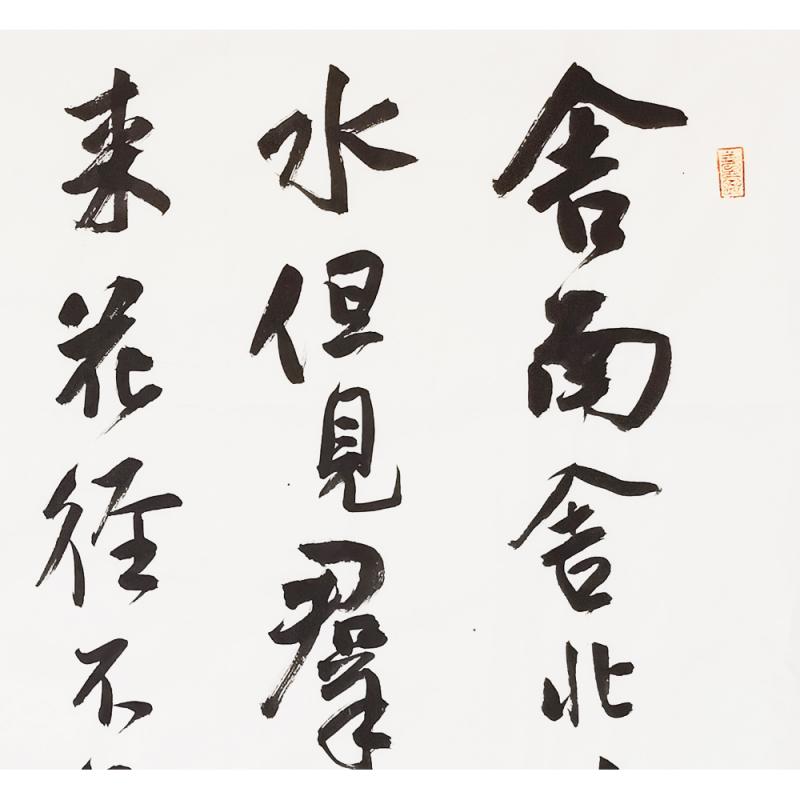 舍南舍北
水但見羣
来花徑不